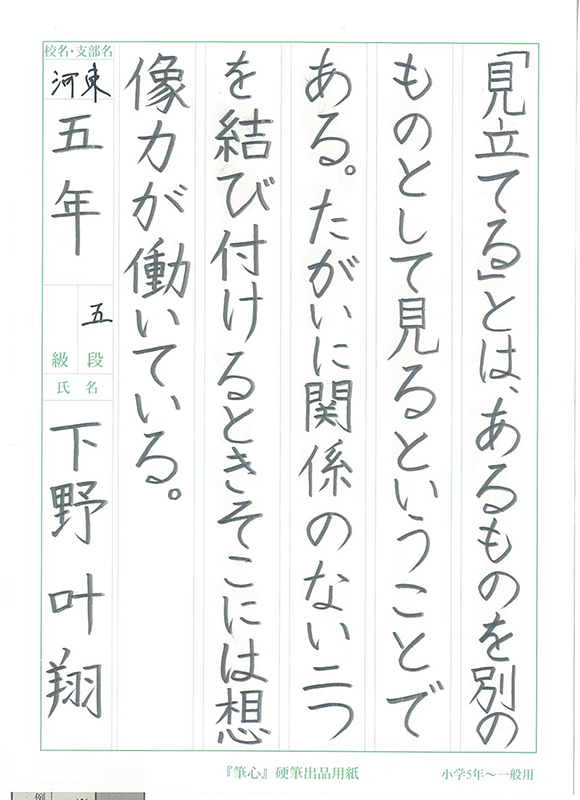 「見立てる」とは、あるものを別の
ものとして見るということで
ある。たがいに関係のない二つ
を結び付けるときそこには想
像力が働いている。
校名・支部名
河東
五年
五
段
級
氏名
下野 叶翔
『筆心』硬筆出品用紙
小学5年〜一般用